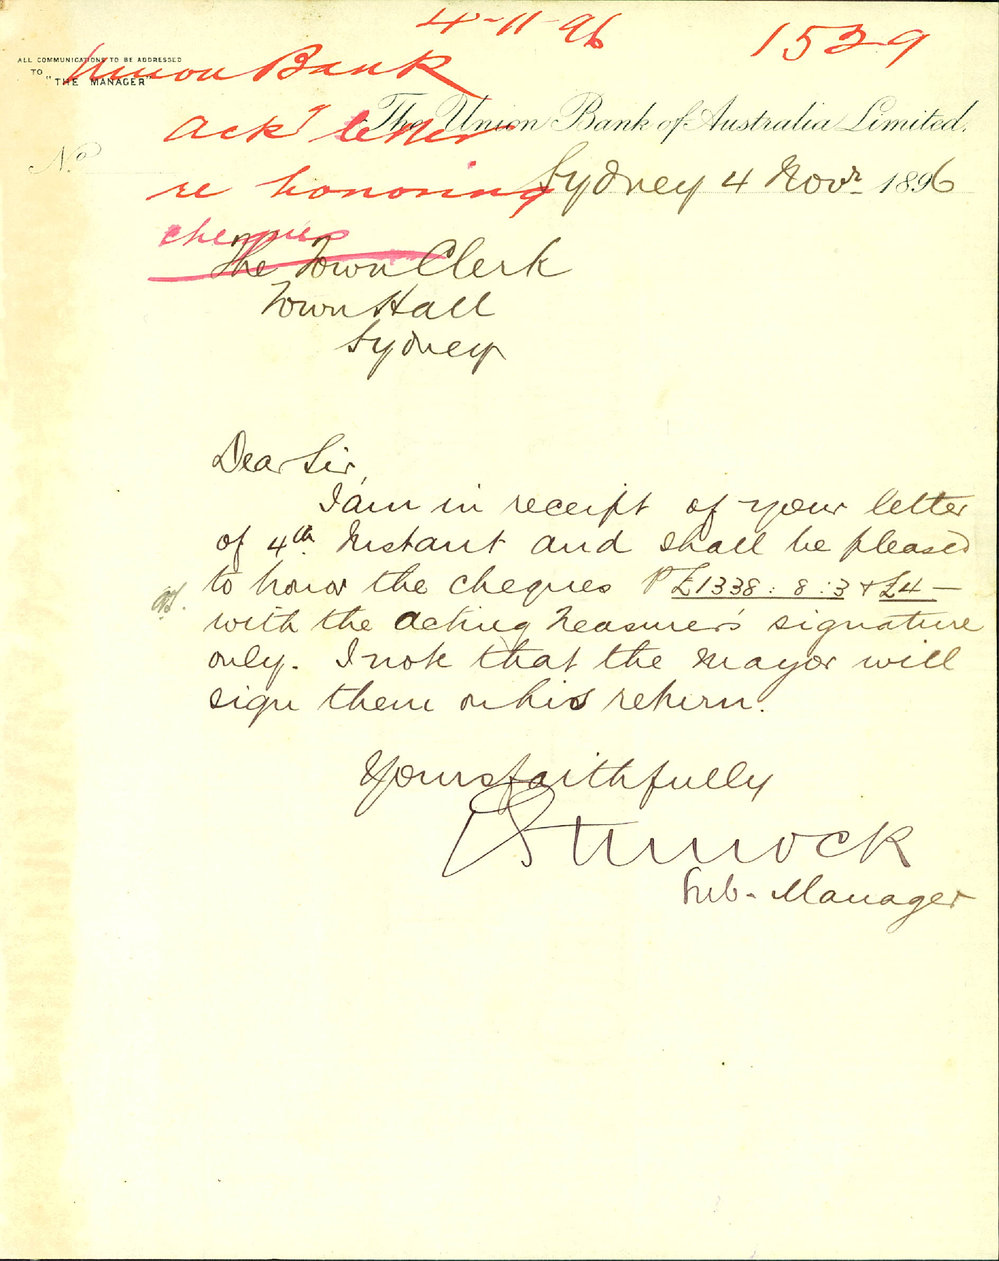 4-11-96
1539
ALL COMMUNICATIONS TO BE ADDRESSED
TO
"THE MANAGER"
Union Bank
Ackg letter
re honoring
cheques
The Union Bank of Australia Limited.
No
Sydney 4 Novr. 1896
The Town Clerk
Town Hall
Sydney
Dear Sir,
I am in receipt of your letter
of 4th Instant and shall be pleased
to honor the cheques £1338:8:3 + £4 —
with the Acting Treasurer's signature
only. I note that the Mayor will
sign them on his return.
Yours faithfully
Sub-Manager